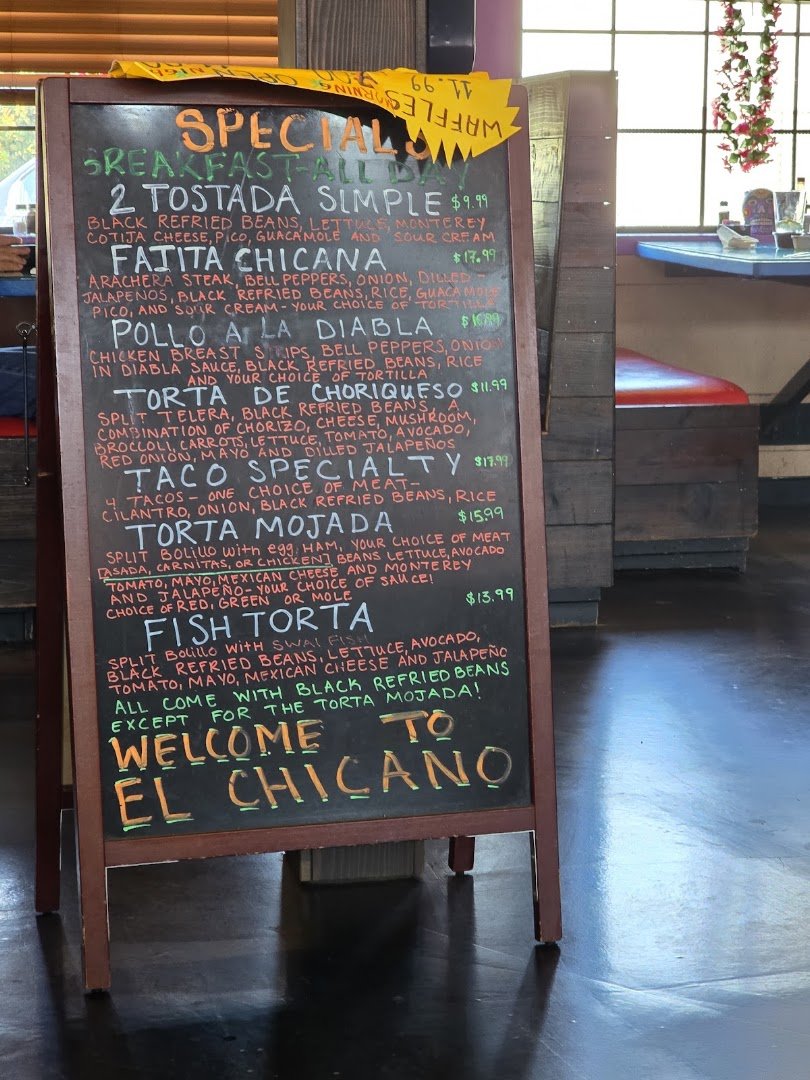 WAFFLES 11.99
MORNING 7:00
OPEN
SPECIALS
BREAKFAST-ALL DAY
2 TOSTADA SIMPLE $9.99
BLACK REFRIED BEANS, LETTUCE, MONTEREY
COTIJA CHEESE, PICO, GUACAMOLE AND SOUR CREAM
FAJITA CHICANA $17.99
ARACHERA STEAK, BELL PEPPERS, ONION, DILLED-
JALAPEÑOS, BLACK REFRIED BEANS, RICE, GUACAMOLE
PICO, AND SOUR CREAM-YOUR CHOICE OF-TORTILLA
POLLO A LA DIABLA
CHICKEN BREAST STRIPS, BELL PEPPERS, ONION
IN DIABLA SAUCE, BLACK REFRIED BEANS, RICE
AND YOUR CHOICE OF TORTILLA
TORTA DE CHORIQUESO $11.99
SPLIT TELERA, BLACK REFRIED BEANS, A
COMBINATION OF CHORIZO, CHEESE, MUSHROOM,
BROCCOLI, CARROTS, LETTUCE, TOMATO, AVOCADO,
RED ONION, MAYO AND DILLED JALAPEÑOS
TACO SPECIALTY
4 TACOS-ONE CHOICE OF MEAT-
CILANTRO, ONION, BLACK REFRIED BEANS, RICE
TORTA MOJADA $15.99
SPLIT Bolillo with egg, HAM, YOUR CHOICE OF MEAT
[ASADA, CARNITAS, OR CHICKEN] BEANS LETTUCE, AVOCADO
TOMATO, MAYO, MEXICAN CHEESE AND MONTEREY
AND JALAPEÑO-YOUR CHOICE OF SAUCE!
CHOICE OF RED, GREEN OR MOLE
FISH TORTA $13.99
SPLIT Bolillo WITH SWAI FISH
BLACK REFRIED BEANS, LETTUCE, AVOCADO,
TOMATO, MAYO, MEXICAN CHEESE AND JALAPEÑO
ALL COME WITH BLACK REFRIED BEANS
EXCEPT FOR THE TORTA MOJADA!
WELCOME TO
EL CHICANO